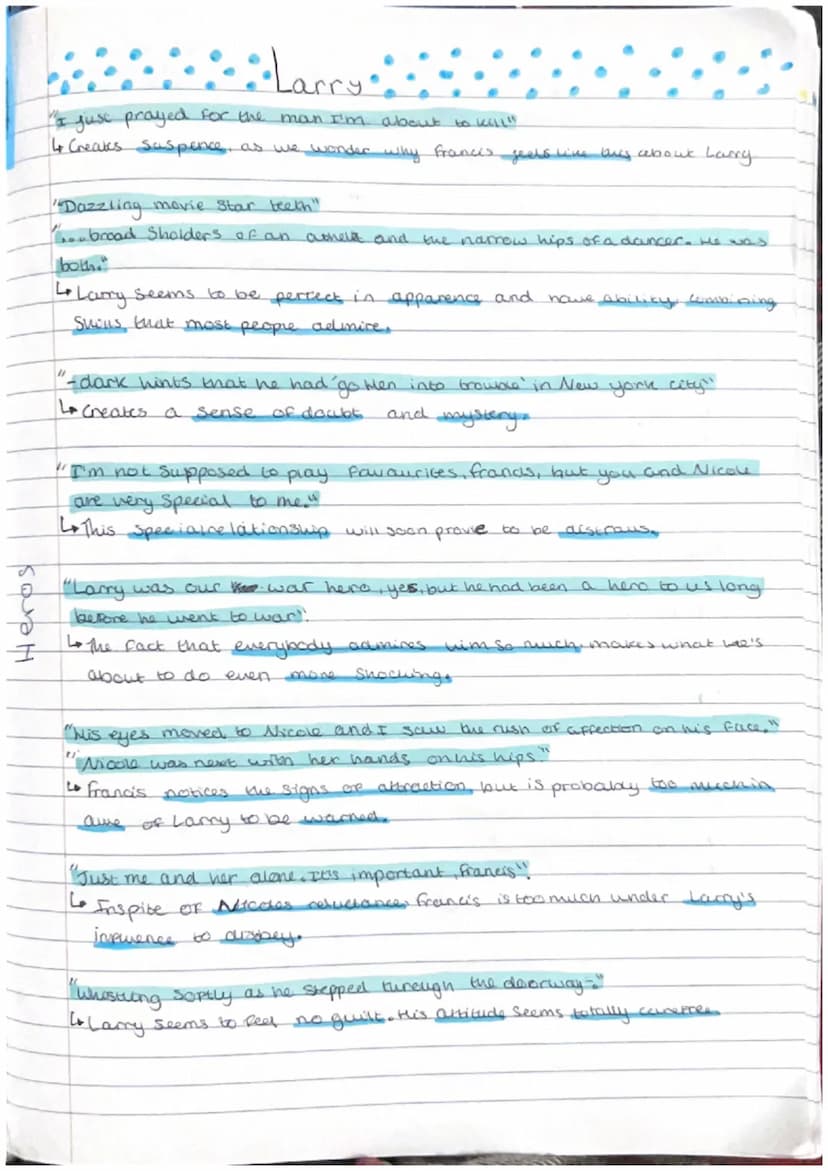 Larry
"I just prayed for the man I'm about to kill"
↳ Creates suspence, as we wonder why francis feels like this about Larry
"Dazzling movie star teeth"
"...broad Sholders of an athelet and the narrow hips of a dancer. He was
both."
↳ Larry seems to be perfect in apparence and have ability, combining
Skills that most people admire.
"-dark hints that he had 'gotten into trouble' in New york city"
↳ Creates a sense of doubt and mystery.
"I'm not Supposed to play Favourites, francis, but you and Nicole
are very special to me."
↳ This special relationship will soon prove to be
"Larry was our war hero, yes, but he had been a hero to us long
before he went to war".
↳ The fact that everybody admires him so much, makes what he's
about to do even more shocking.
Heros
"his eyes moved to Nicole and I saw the rush of affection on his face."
"Nicole was next with her hands on his hips."
↳ francis notices the signs of attraction, but is probably too much in
awe of Larry to be warned.
"Just me and her alone. It's important, francis".
↳ Inspite of Nicoles reluctance, francis is too much under Larry's
influence to disobey.
"Whistling softly as he stepped through the doorway-."
↳ Larry seems to feel no guilt. His attitude seems totally carefree.